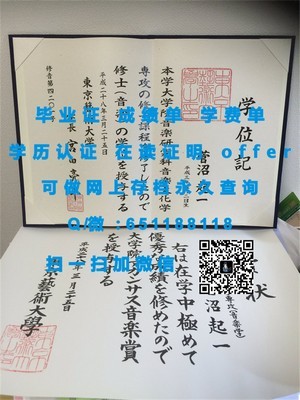 毕业证 成绩单 学费单
学历认证 在读证明 offer
可做网上存档永久查询
Q/微:651189118
扫一扫加微信
学位記
菅沼起一
本学大学院音楽研究科音楽文化学
専攻の修士課程を修了したので
修士（音楽）の学位を授与する
平成二十八年三月二十五日
東京藝術大学長 宮田亮平
修音第四二
状
専攻(音楽学)
沼起一
右は在学中極めて
優秀な成績を修めたので
大学院アカンサス音楽賞
を授与する
月二十五日
東京藝術大學